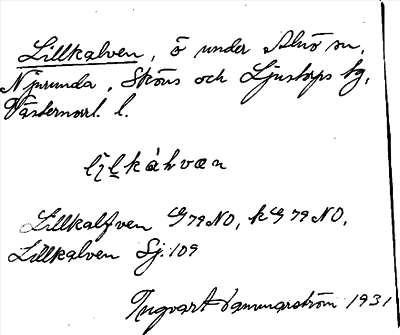 Lillkalven, ö under Alnö sn,
Njurunda, Sköns och Ljustorps tg,
Västernorrl. l.
lilkàlvæn
Lillkalfven G 79 NO, kG 79 NO,
Lillkalven Sj. 109
Ingvart Hammarström 1931